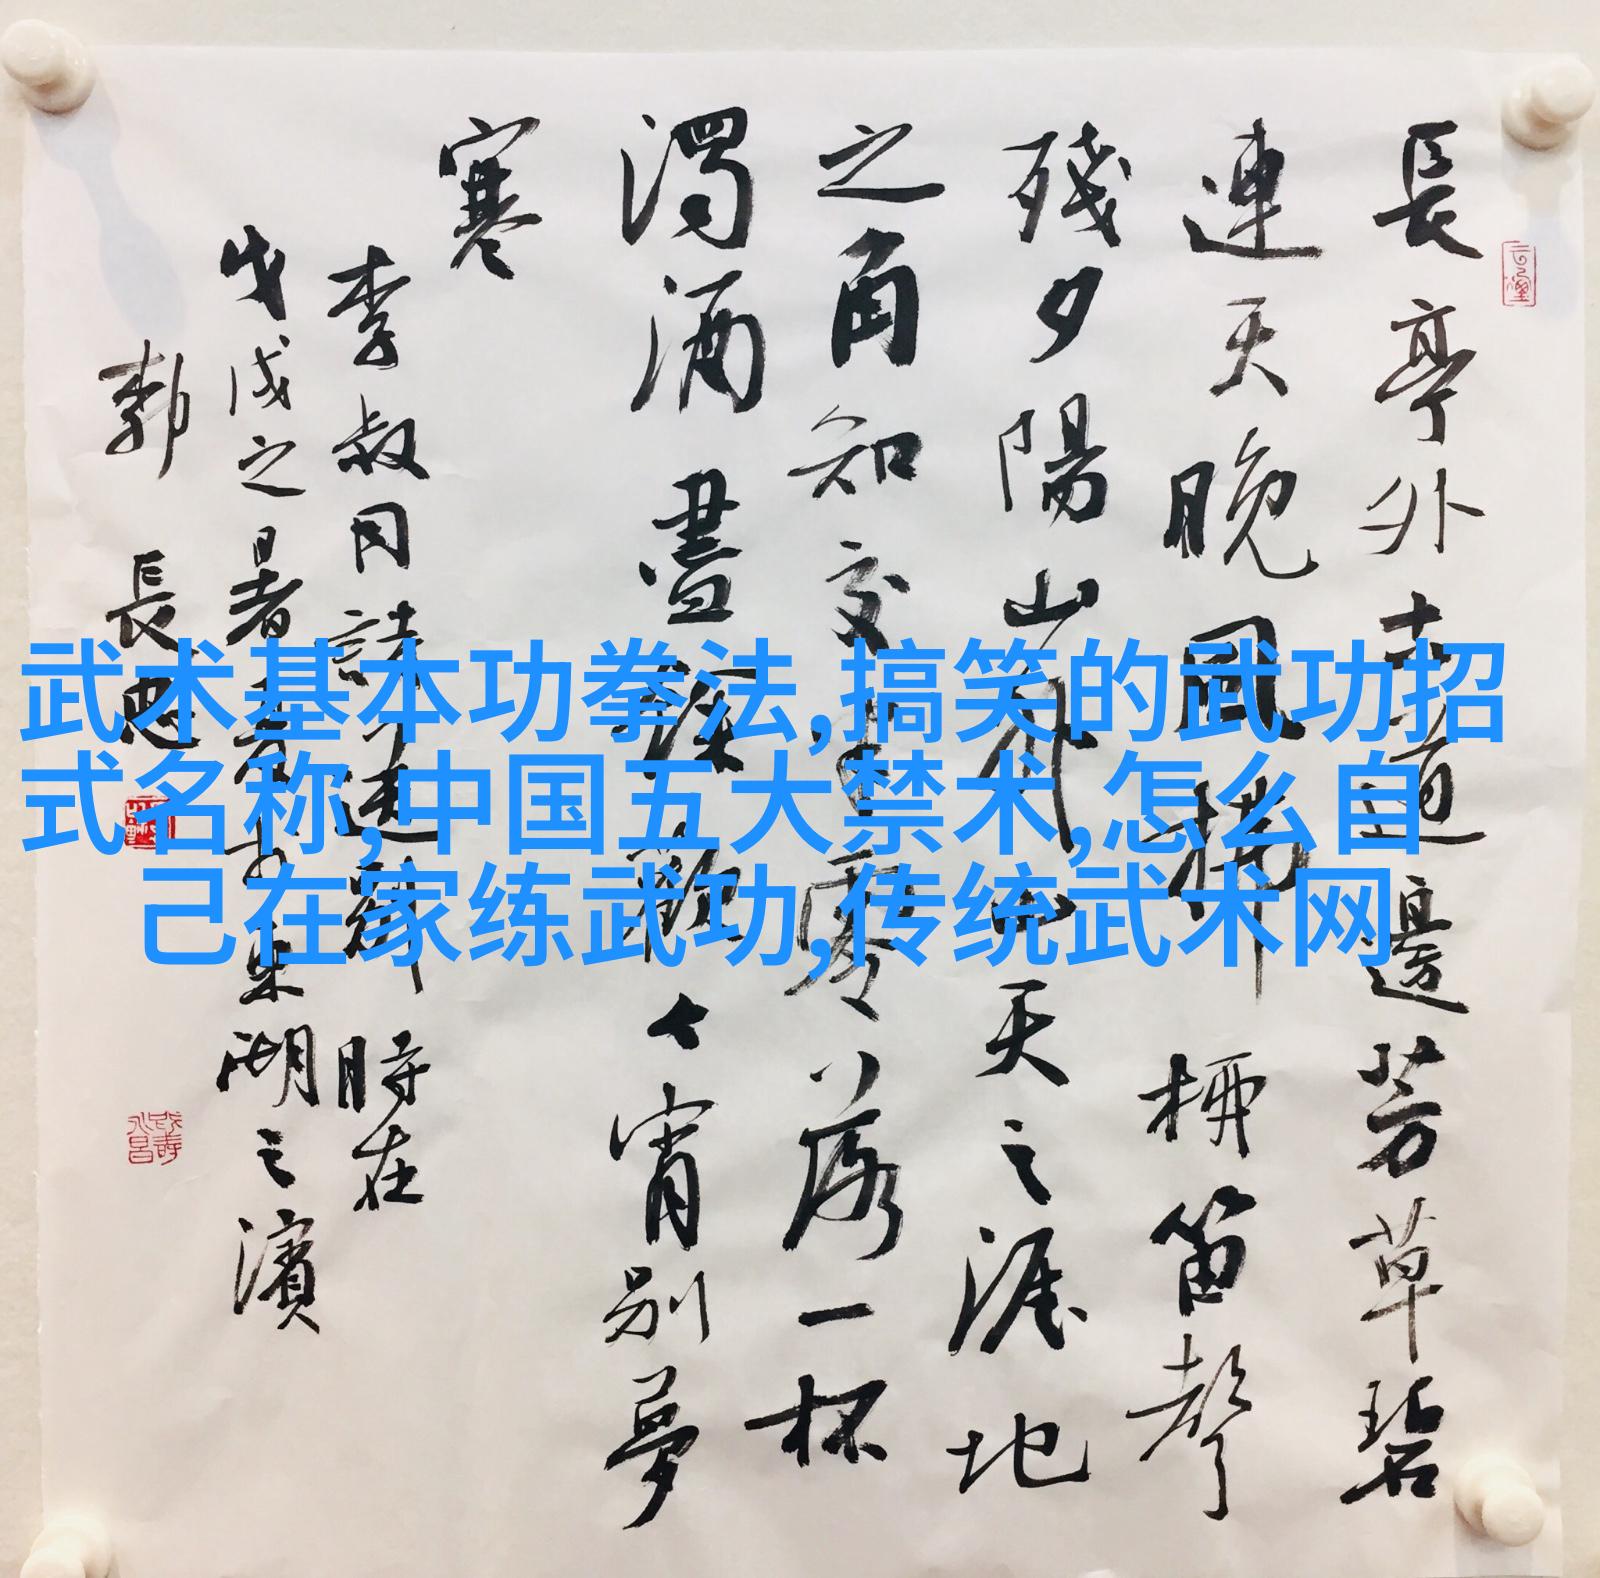 長亭外古道邊芳草碧
連天晚風拂柳笛聲
殘夕陽山外山天之涯地
之角知交半零落一杯
濁酒盡餘歡今宵別夢
寒
李叔同詩送別 時在
戊戌之暑書於東湖之濱
郭長忠
武术基本功拳法,搞笑的武功招
式名称,中国五大禁术,怎么自
己在家练武功,传统武术网